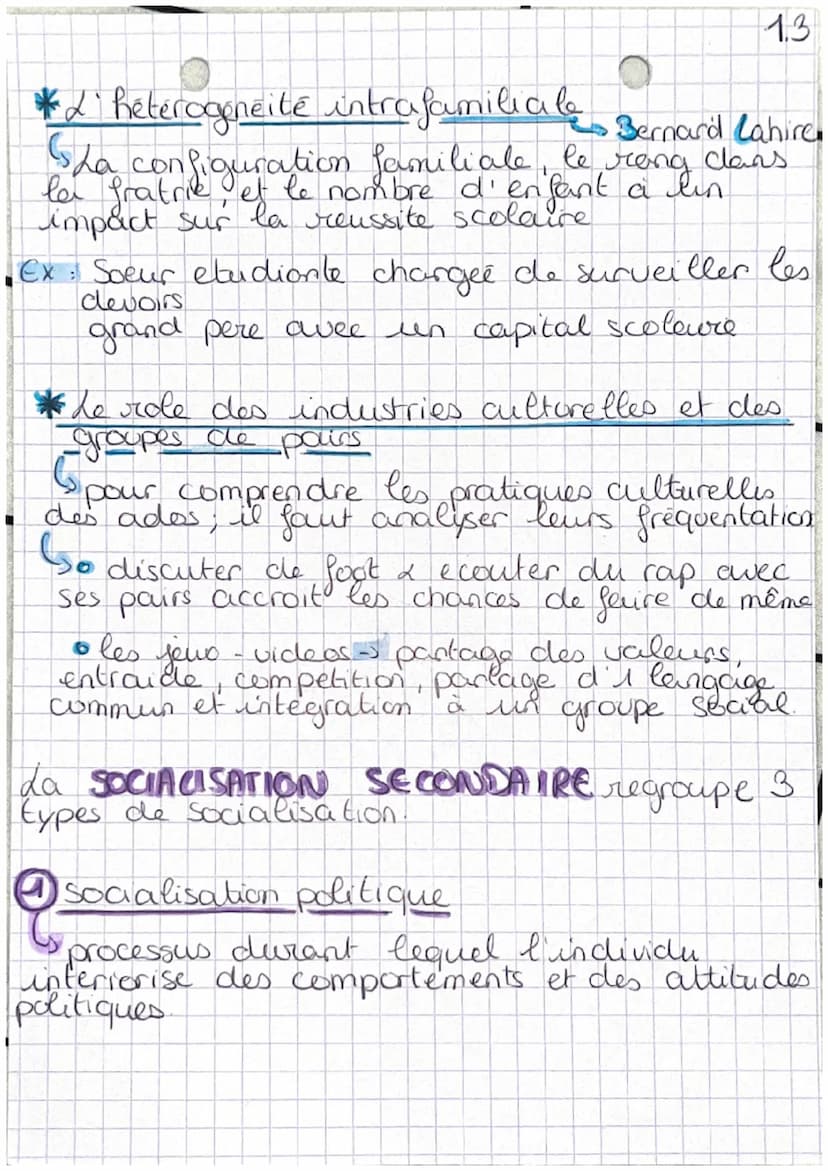 1.3
* L'hétérogénéité intrafamiliale
↳ Bernard Lahire.
↳ La configuration familiale, le rang dans
la fratrie, et le nombre d'enfant à un
impact sur la réussite scolaire
Ex : Soeur etudiante chargée de surveiller les
devoirs
grand pere avec un capital scolaire
* Le role des industries culturelles et des
groupes de pairs
↳ pour comprendre les pratiques culturelles
des ados ; il faut analyser leurs fréquentation
↳ • discuter de foot & ecouter du rap avec
ses pairs accroit les chances de faire de même
• les jeux-videos -> partage des valeurs,
entraide, competition, partage d'1 langage
commun et intégration à un groupe social.
La SOCIALISATION SECONDAIRE regroupe 3
types de socialisation.
① socialisation politique
↳ processus durant lequel l'individu
interiorise des comportements et des attitudes
politiques.